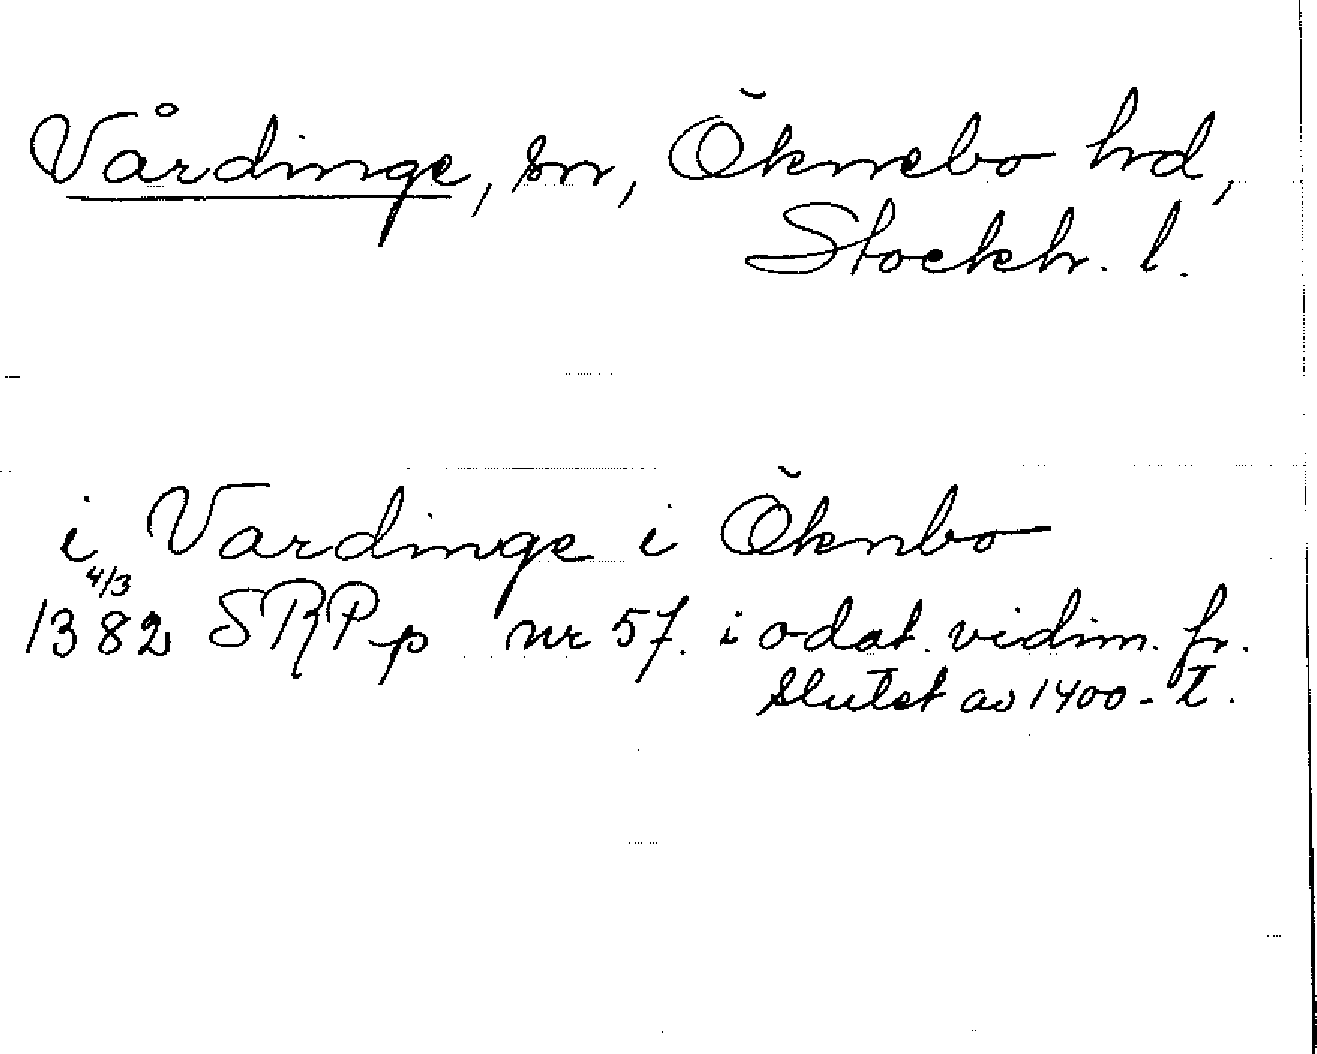 Vårdinge, sn, Öknebo hd,
Stockh. l.
i Vardinge i Öknbo
4/3
1382 SRPp nr 57. i odat. vidim. fr.
slutet av 1400-t.